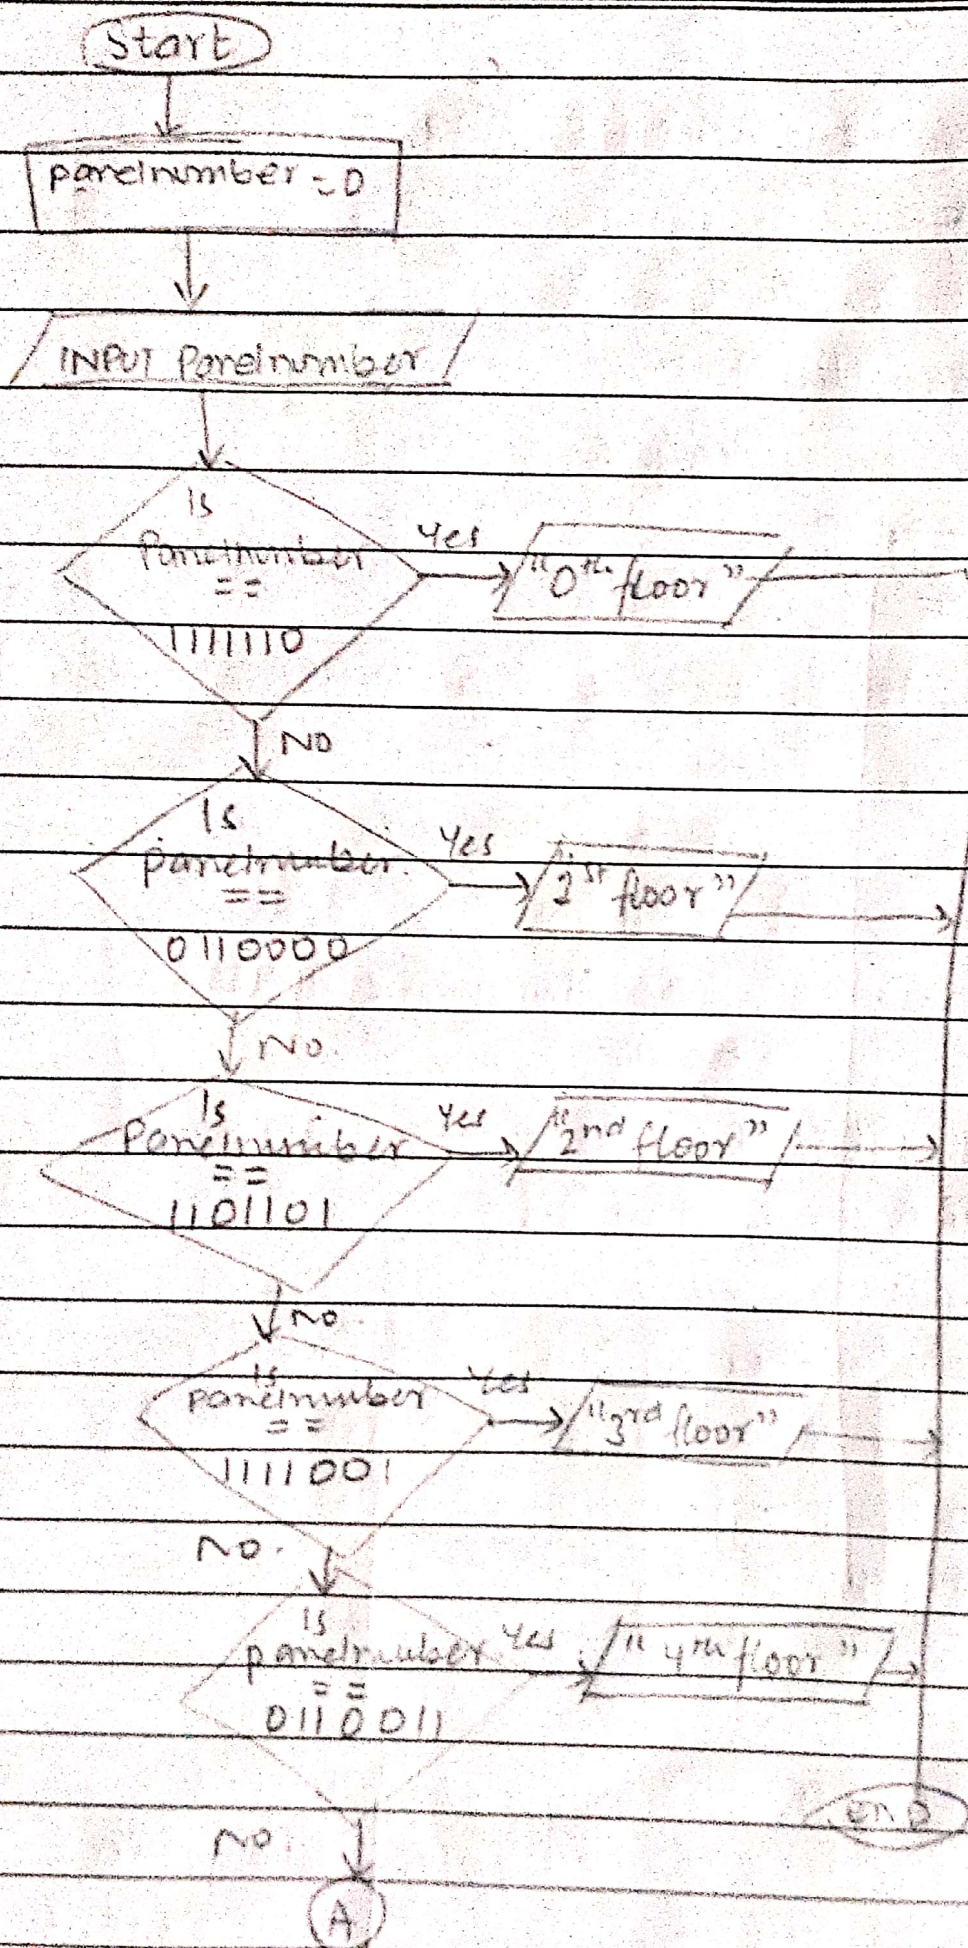 Start
panelnumber = 0
INPUT Panelnumber
Is
Panelnumber
==
1111110
Yes
"0th floor"
NO
Is
panelnumber
==
0110000
Yes
"1st floor"
No
Is
Panelnumber
==
1101101
Yes
"2nd floor"
No
Is
panelnumber
==
1111001
Yes
"3rd floor"
No.
Is
panelnumber
==
0110011
Yes
"4th floor"
END
No
A